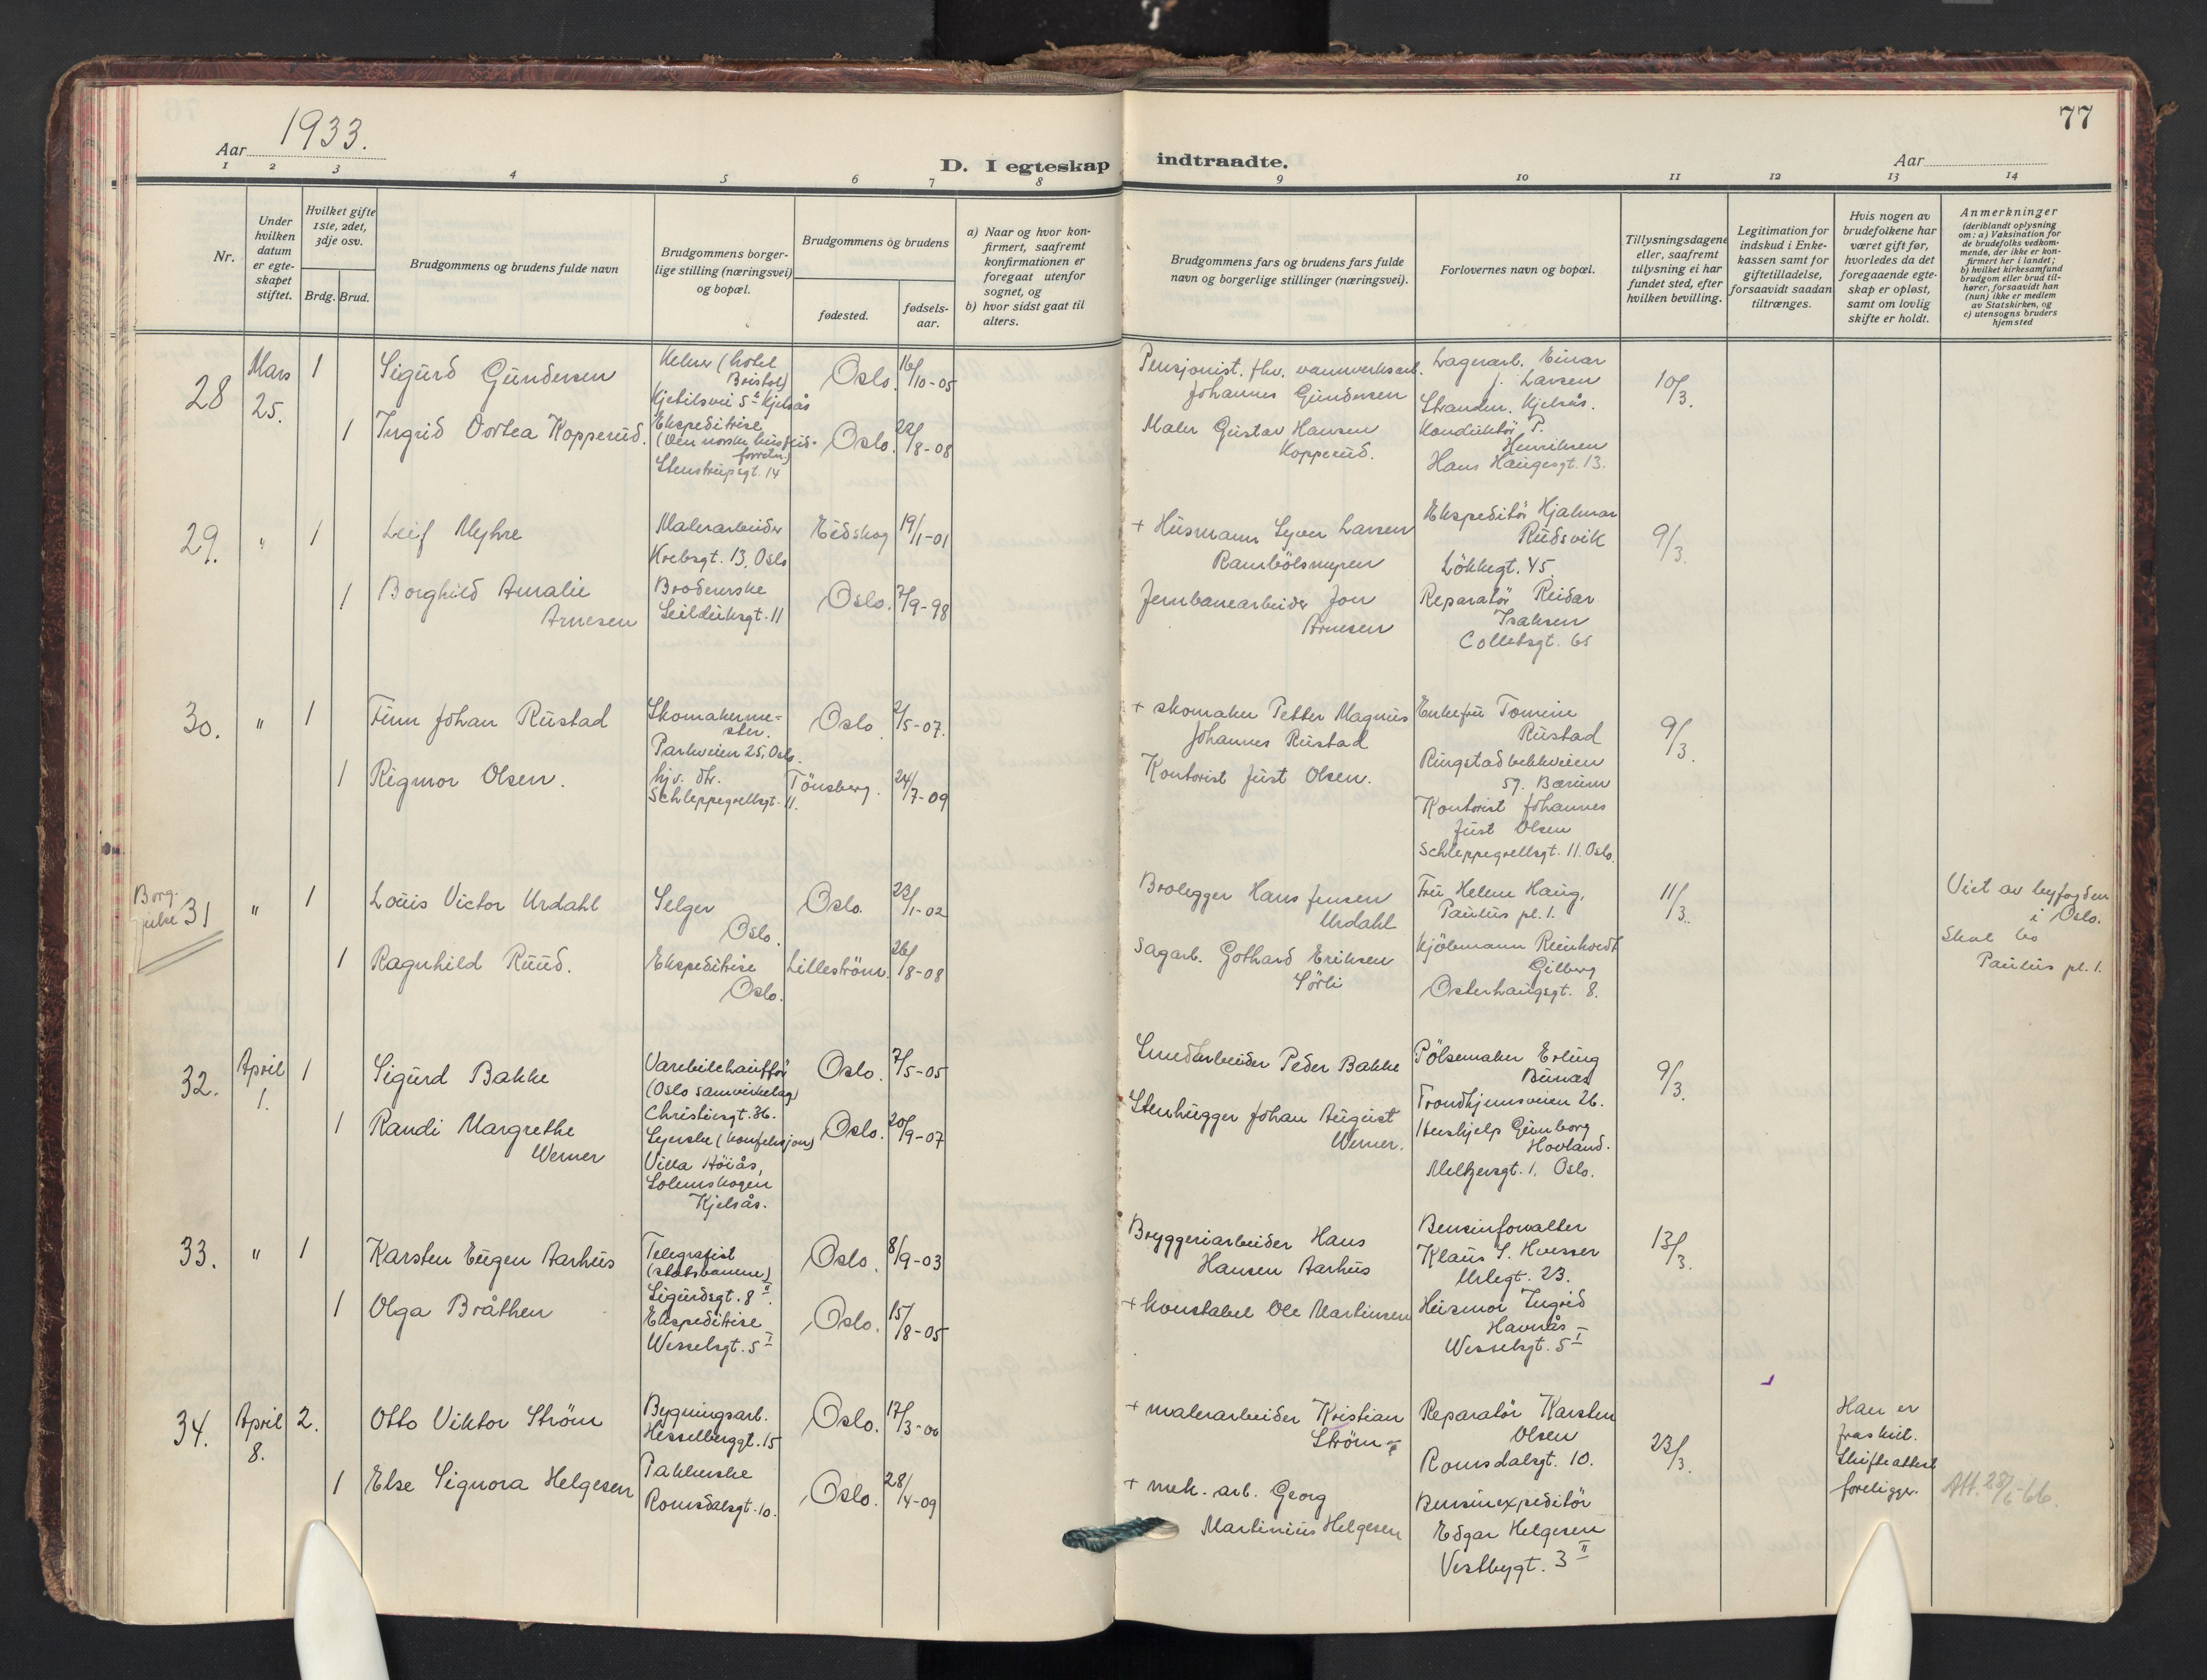 77
Aar 1933.
D. I egteskap indtraadte.
Aar
1 2 3 4 5 6 7 8 9 10 11 12 13 14
Nr.
Under
hvilken
datum
er egte-
skapet
stiftet.
Hvilket gifte
1ste, 2det,
3dje osv.
Brdg.
Brud.
Brudgommens og brudens fulde navn
Brudgommens borger-
lige stilling (næringsvei)
og bopæl.
Brudgommens og brudens
fødested.
fødsels-
aar.
a) Naar og hvor kon-
firmert, saafremt
konfirmationen er
foregaat utenfor
sognet, og
b) hvor sidst gaat til
alters.
Brudgommens fars og brudens fars fulde
navn og borgerlige stillinger (næringsvei).
Forlovernes navn og bopæl.
Tillysningsdagene
eller, saafremt
tillysning ei har
fundet sted, efter
hvilken bevilling.
Legitimation for
indskud i Enke-
kassen samt for
giftetilladelse,
forsaavidt saadan
tiltrænges.
Hvis nogen av
brudefolkene har
været gift før,
hvorledes da det
foregaaende egte-
skap er opløst,
samt om lovlig
skifte er holdt.
Anmerkninger
(deriblandt oplysning
om: a) Vaksination for
de brudefolks vedkom-
mende, der ikke er kon-
firmert her i landet;
b) hvilket kirkesamfund
brudgom eller brud til-
hører, forsaavidt han
(hun) ikke er medlem
av Statskirken, og
c) utensogns bruders
hjemsted
28
Mars
25.
1
Sigurd Gundersen
Kelner (hotel
Bristol)
Kjetilsvei 5 Kjelsås
Oslo.
16/10-05
Pensjonist, fhv. vannverksarb.
Johannes Gundersen
Lagerarb. Einar
J. Larsen
Stranden. Kjelsås.
10/3.
1
Ingrid Dortea Kopperud.
Ekspeditrise
(Den norske husflids-
forretn.)
Stenstrupsgt. 14
Oslo.
22/8-08
Maler Gustav Hansen
Kopperud.
Konduktör P.
Henriksen
Hans Haugesgt. 13.
29.
"
1
Leif Myhre
Malerarbeider
Krebsgt. 13, Oslo
Eidskog
19/1-01
+ Husmann Syver Larsen
Rambölsmyren
Ekspeditör Hjalmar
Rudsvik
Lökkegt. 45.
9/3.
1
Borghild Amalie
Arnesen
Brodererske
Seilduksgt. 11
Oslo.
7/9-98
Jernbanearbeider Jon
Arnesen
Reparatör Reidar
Isaksen
Colletsgt. 65
30.
"
1
Finn Johan Rustad
Skomakerme-
ster.
Parkveien 25, Oslo.
Oslo.
2/5-07.
+ skomaker Petter Magnus
Johannes Rustad
Enkefru Tomine
Rustad
Ringstadbekkveien
59. Bærum
9/3.
1
Rigmor Olsen.
hjv. dtr.
Schleppegrellsgt. 11.
Tönsberg.
24/7-09
Kontorist Just Olsen.
Kontorist Johannes
Just Olsen
Schleppegrellsgt. 11. Oslo.
Borg.
31
"
1
Louis Victor Urdahl
Selger
Oslo.
Oslo.
23/1-02
Brolegger Hans Jensen
Urdahl
Fru Helene Haug,
Paulus pl. 1.
11/3.
Viet av byfogden
i Oslo.
Skal bo
Paulus pl. 1.
1
Ragnhild Ruud.
Ekspeditrise
Oslo.
Lilleström.
26/8-08
Sagarb. Gothard Eriksen
Sörli
Kjöbmann Reinhordt
Gilberg
Osterhausgt. 8.
32.
April
1.
1
Sigurd Bakke
Varebilchaufför
(Oslo samvirkelag)
Christiesgt. 36.
Oslo.
7/5-05
Smedarbeider Peder Bakke
Pölsemaker Erling
Bunæs
Trondhjemsveien 26.
9/3.
1
Randi Margrethe
Werner
Syerske (konfeksjon)
Villa Höiås,
Solemskogen
Kjelsås.
Oslo.
20/9-07
Stenhugger Johan August
Werner.
Hushjelp Gunborg
Hovland.
Meltzersgt. 1. Oslo.
33.
"
1
Karsten Eugen Aarhus
Telegrafist
(statsbanene)
Sigurdsgt. 8 II.
Oslo.
8/9-03
Bryggeriarbeider Hans
Hansen Aarhus
Bensinforvalter
Klaus S. Huesser
Urtegt. 23.
13/3.
1
Olga Bråthen
Ekspeditrise
Wesselsgt. 5 I
Oslo.
15/8-05
+ konstabel Ole Martinsen
Husmor Ingrid
Havnås
Wesselsgt. 5 I
34.
April
8.
2.
Otto Viktor Ström
Bygningsarb.
Hesselberggt. 15
Oslo.
17/3-06
+ malerarbeider Kristian
Ström
Reparatör Karsten
Olsen
Romsdalsgt. 10.
23/3.
Han er
fraskilt.
Skifteattest
foreligger.
Att. 28/6-66.
1
Else Signora Helgesen
Pakkerske
Romsdalsgt. 10.
Oslo.
28/4-09
+ mek. arb. Georg
Martinius Helgesen
Bensinexpeditör
Edgar Helgesen
Vestbygt. 3 II